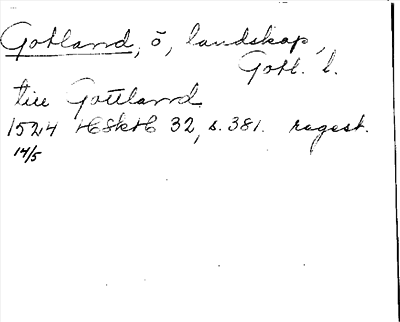 Gotland, ö, landskap,
Gotl. l.
till Gottland
1524 HSkH 32, s. 381. regest.
14/5